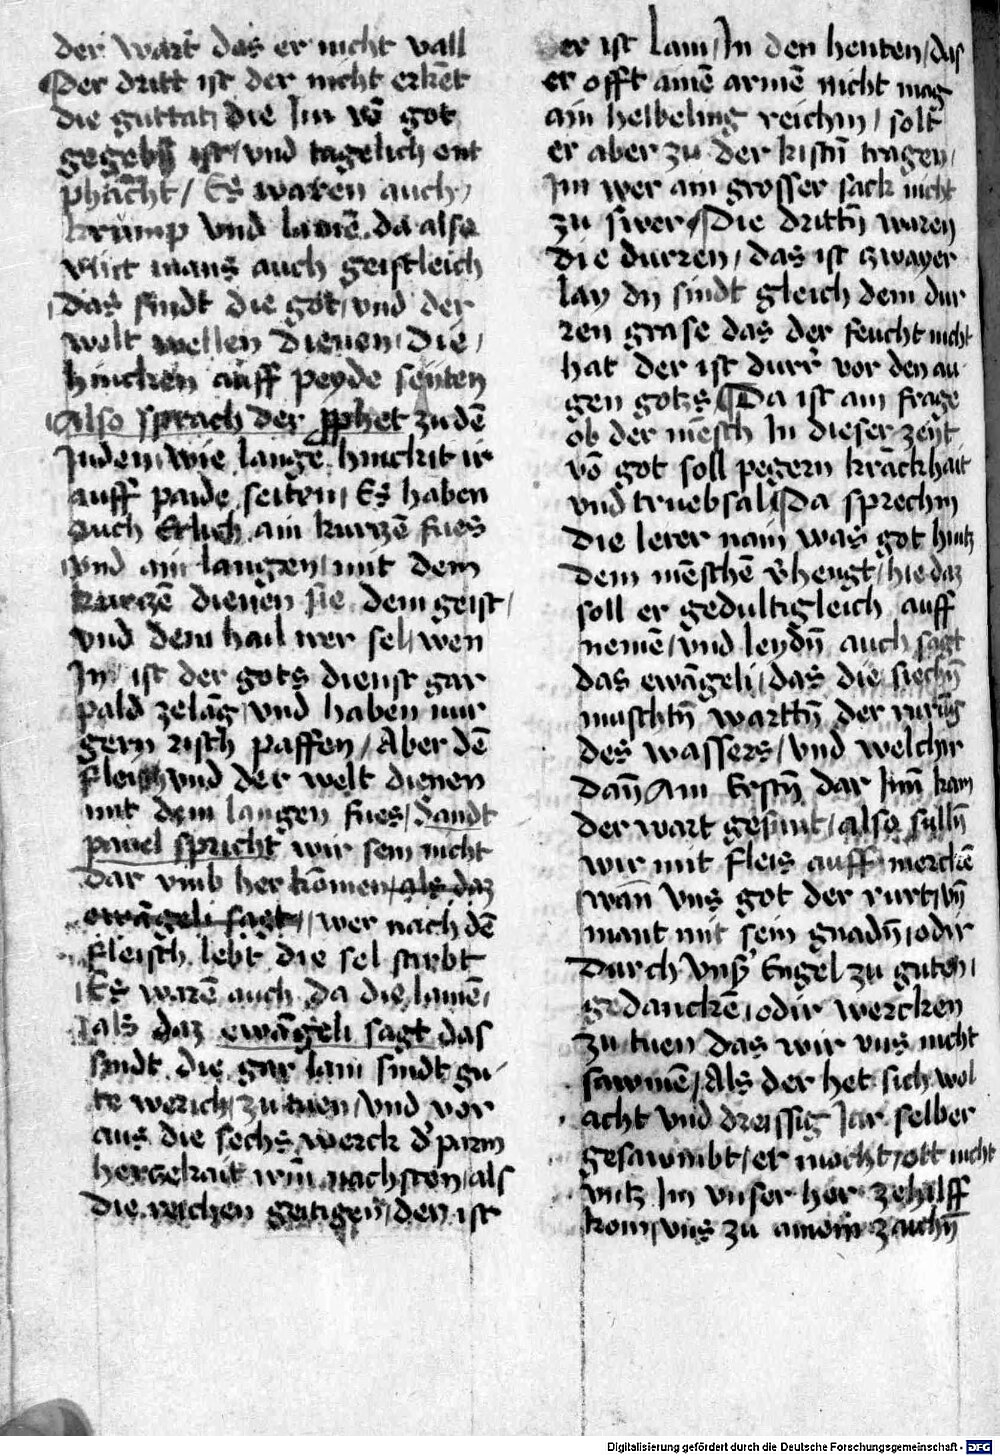 der wart das er nicht vall
Der dritt ist der nicht erkēt
die guttat, die Im vō got
gegebn̄ ist / vnd tagelich ent
phacht / Es waren auch
krump vnd lamē da also
vint mans auch geistleich
das sindt die got / vnd der
welt wellen dienen / die
hincken auff peyde seiten
also sprach der pphet zu dē
Juden wie lange hinckit ir
auff paide seiten / Es haben
auch Etlich ain kurczē fues
vnd ain langen / mit dem
kurczē dienen sie dem geist /
vnd dem hail irer sel / wen
In ist der gots dienst gar
pald zelāg / vnd haben nur
gern risch paffen / Aber dē
fleisch vnd der welt dienen
mit dem langen fues / Sandt
pauel spricht wir sein nicht
dar vmb her kōmen als daz
ewāgeli sagt / wer nach dē
fleisch lebt die sel stirbt
Es warē auch da die lamē /
als daz ewāgeli sagt das
sindt die gar lam sindt gu
te werich zu tuen / vnd vor
aus die sechs werck d' parm
herczikait irm nachsten / als
die reichen geitigen / den ist
er ist lam / In den henten / das
er offt ainē armē nicht mag
ain helbeling reichin / solt
er aber zu der kistn̄ tragen /
Im wer ain grosser sack nicht
zu swer / Die drittn̄ waren
die durren / das ist zwayer
lay dy sindt gleich dem dur
ren grase das der feucht nicht
hat der ist durr vor den au
gen gotzs / Da ist ain frage
ob der mēsch In dieser zeyt
vō got soll pegern krāckhait
vnd truebsal / Da sprechin
die lerer nain was got hintz
dem mēschē v'hengt / hie daz
soll er gedultigleich auff
nemē / vnd leydn̄ auch sagt
das ewāgeli / das die siechn̄
muschtn̄ warttn̄ der rurūg
des wassers / vnd welchir
dan̄ Am Erstn̄ dar Inn̄ kam
der wart gesunt / also sulln̄
wir mit fleis auff merckē
wan̄ vns got der rurt / vn̄
mant mit sein gnadn̄ / odir
durch vnsˀ Engel zu guten
gedanckē / odir wercken
zu tuen das wir vns nicht
sawmē / Als der het sich wol
acht vnd dreissig Iar selber
gesawmbt / er mocht / ott nicht
vntz Im vnser her zehilff
kom / vns zu ainem zaichn̄
Digitalisierung gefördert durch die Deutsche Forschungsgemeinschaft - DFG